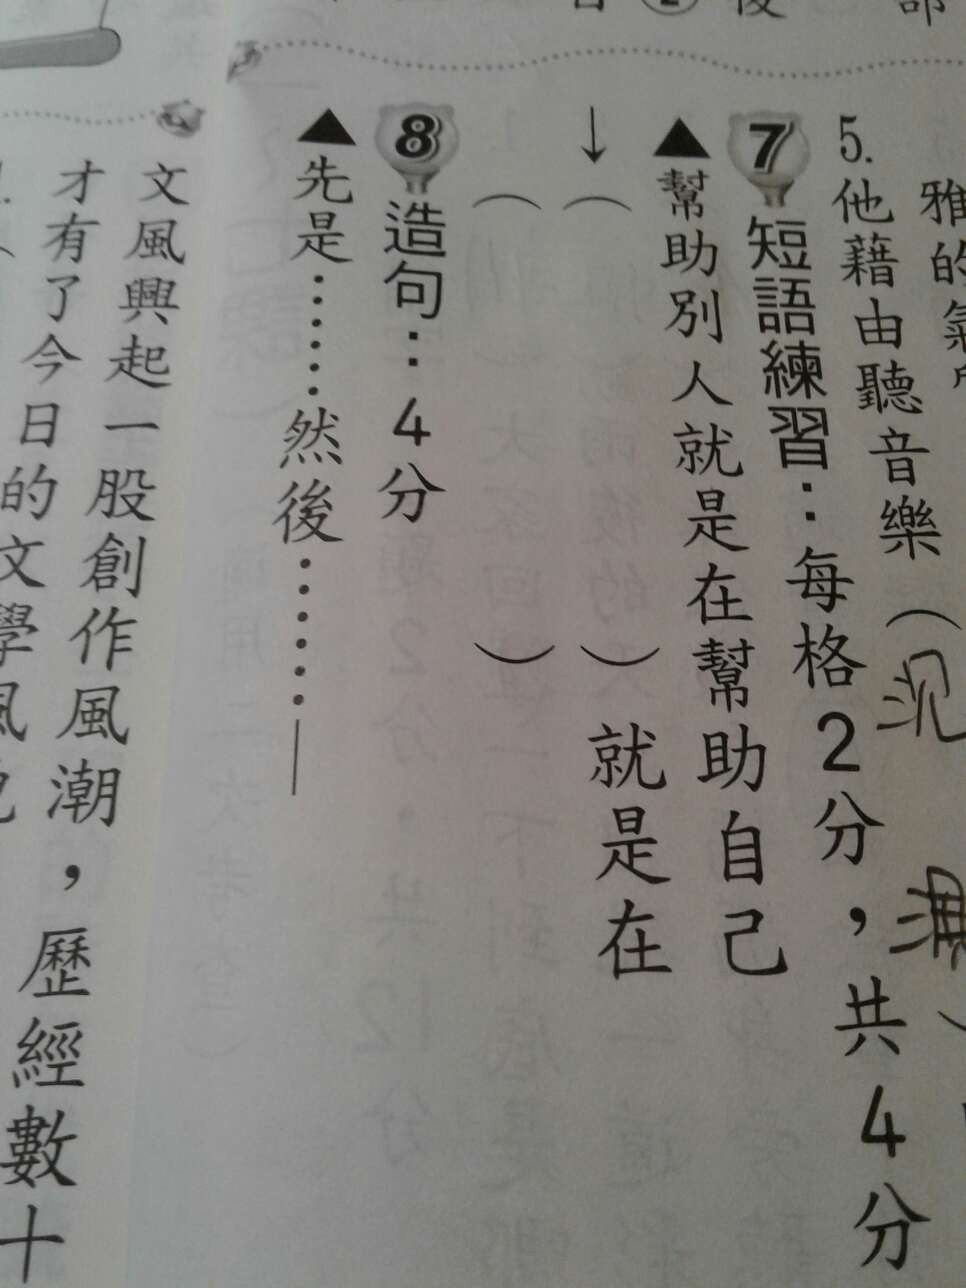 雅的氣
5.他藉由聽音樂（沉
7 短語練習：每格2分，共4分
▲幫助別人就是在幫助自己
↓（ ）就是在
（ ）
8 造句：4分
▲先是………然後………—
文風興起一股創作風潮，歷經數十
才有了今日的文學風